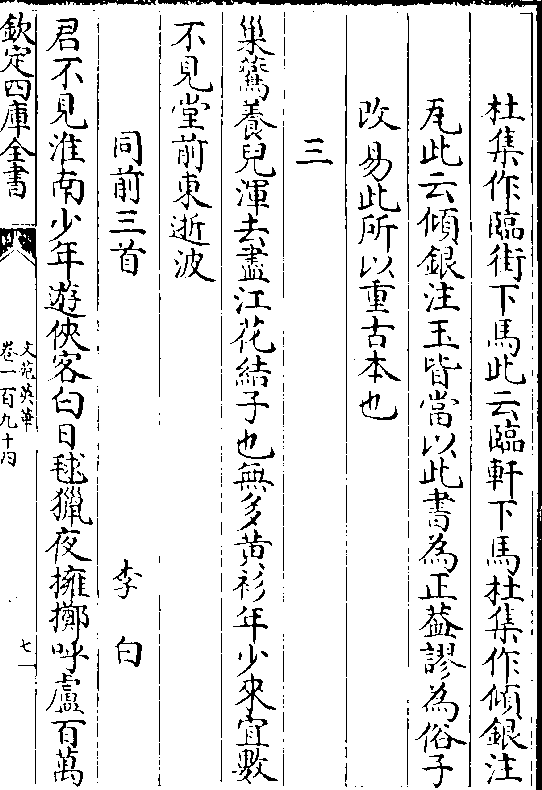 杜集作臨街下馬此云臨軒下馬杜集作傾銀注
瓦此云傾銀注玉皆當以此書為正葢謬為俗子
改易此所以重古本也
三
巢鶯養兒渾去盡江花結子也無多黄衫年少來宜數
不見堂前東逝波
同前三首 李白
君不見淮南少年遊俠客白日毬獵夜擁擲呼盧百萬
欽定四庫全書
文苑英華
卷一百九十四
七